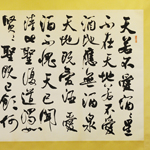 天若不愛酒星
不在天地若不愛
酒地應無酒泉
天地既愛酒愛
酒不愧天已聞
清比聖復道濁如
賢聖既已飲何